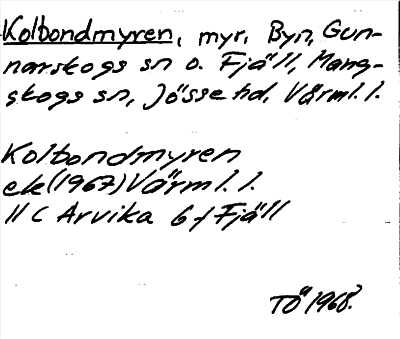 Kolbondmyren, myr, Byn, Gun-
narskogs sn o. Fjäll, Mang-
skogs sn, Jösse hd, Värml. l.
Kolbondmyren
ek (1967) Värml. l.
11 C Arvika 6 f Fjäll
TÖ 1968.